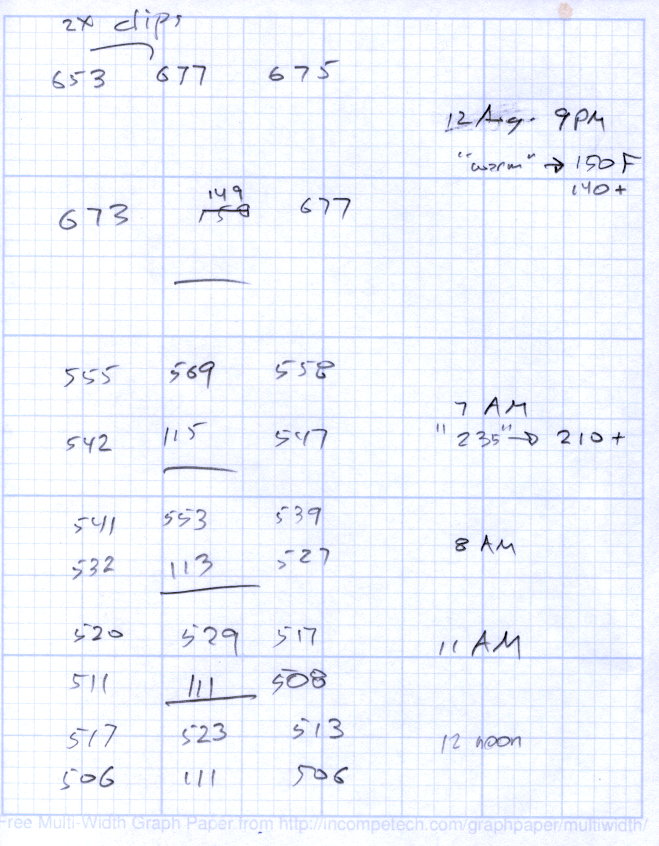 2x clips
653 677 675
12 Aug. 9PM
"warm" → 150 F
140+
149
673 677
555 569 558
7 AM
542 115 547
"235" → 210+
541 553 539
8 AM
532 113 527
520 529 517
11 AM
511 111 508
517 523 513
12 noon
506 111 506
Free Multi-Width Graph Paper from http://incompetech.com/graphpaper/multiwidth/